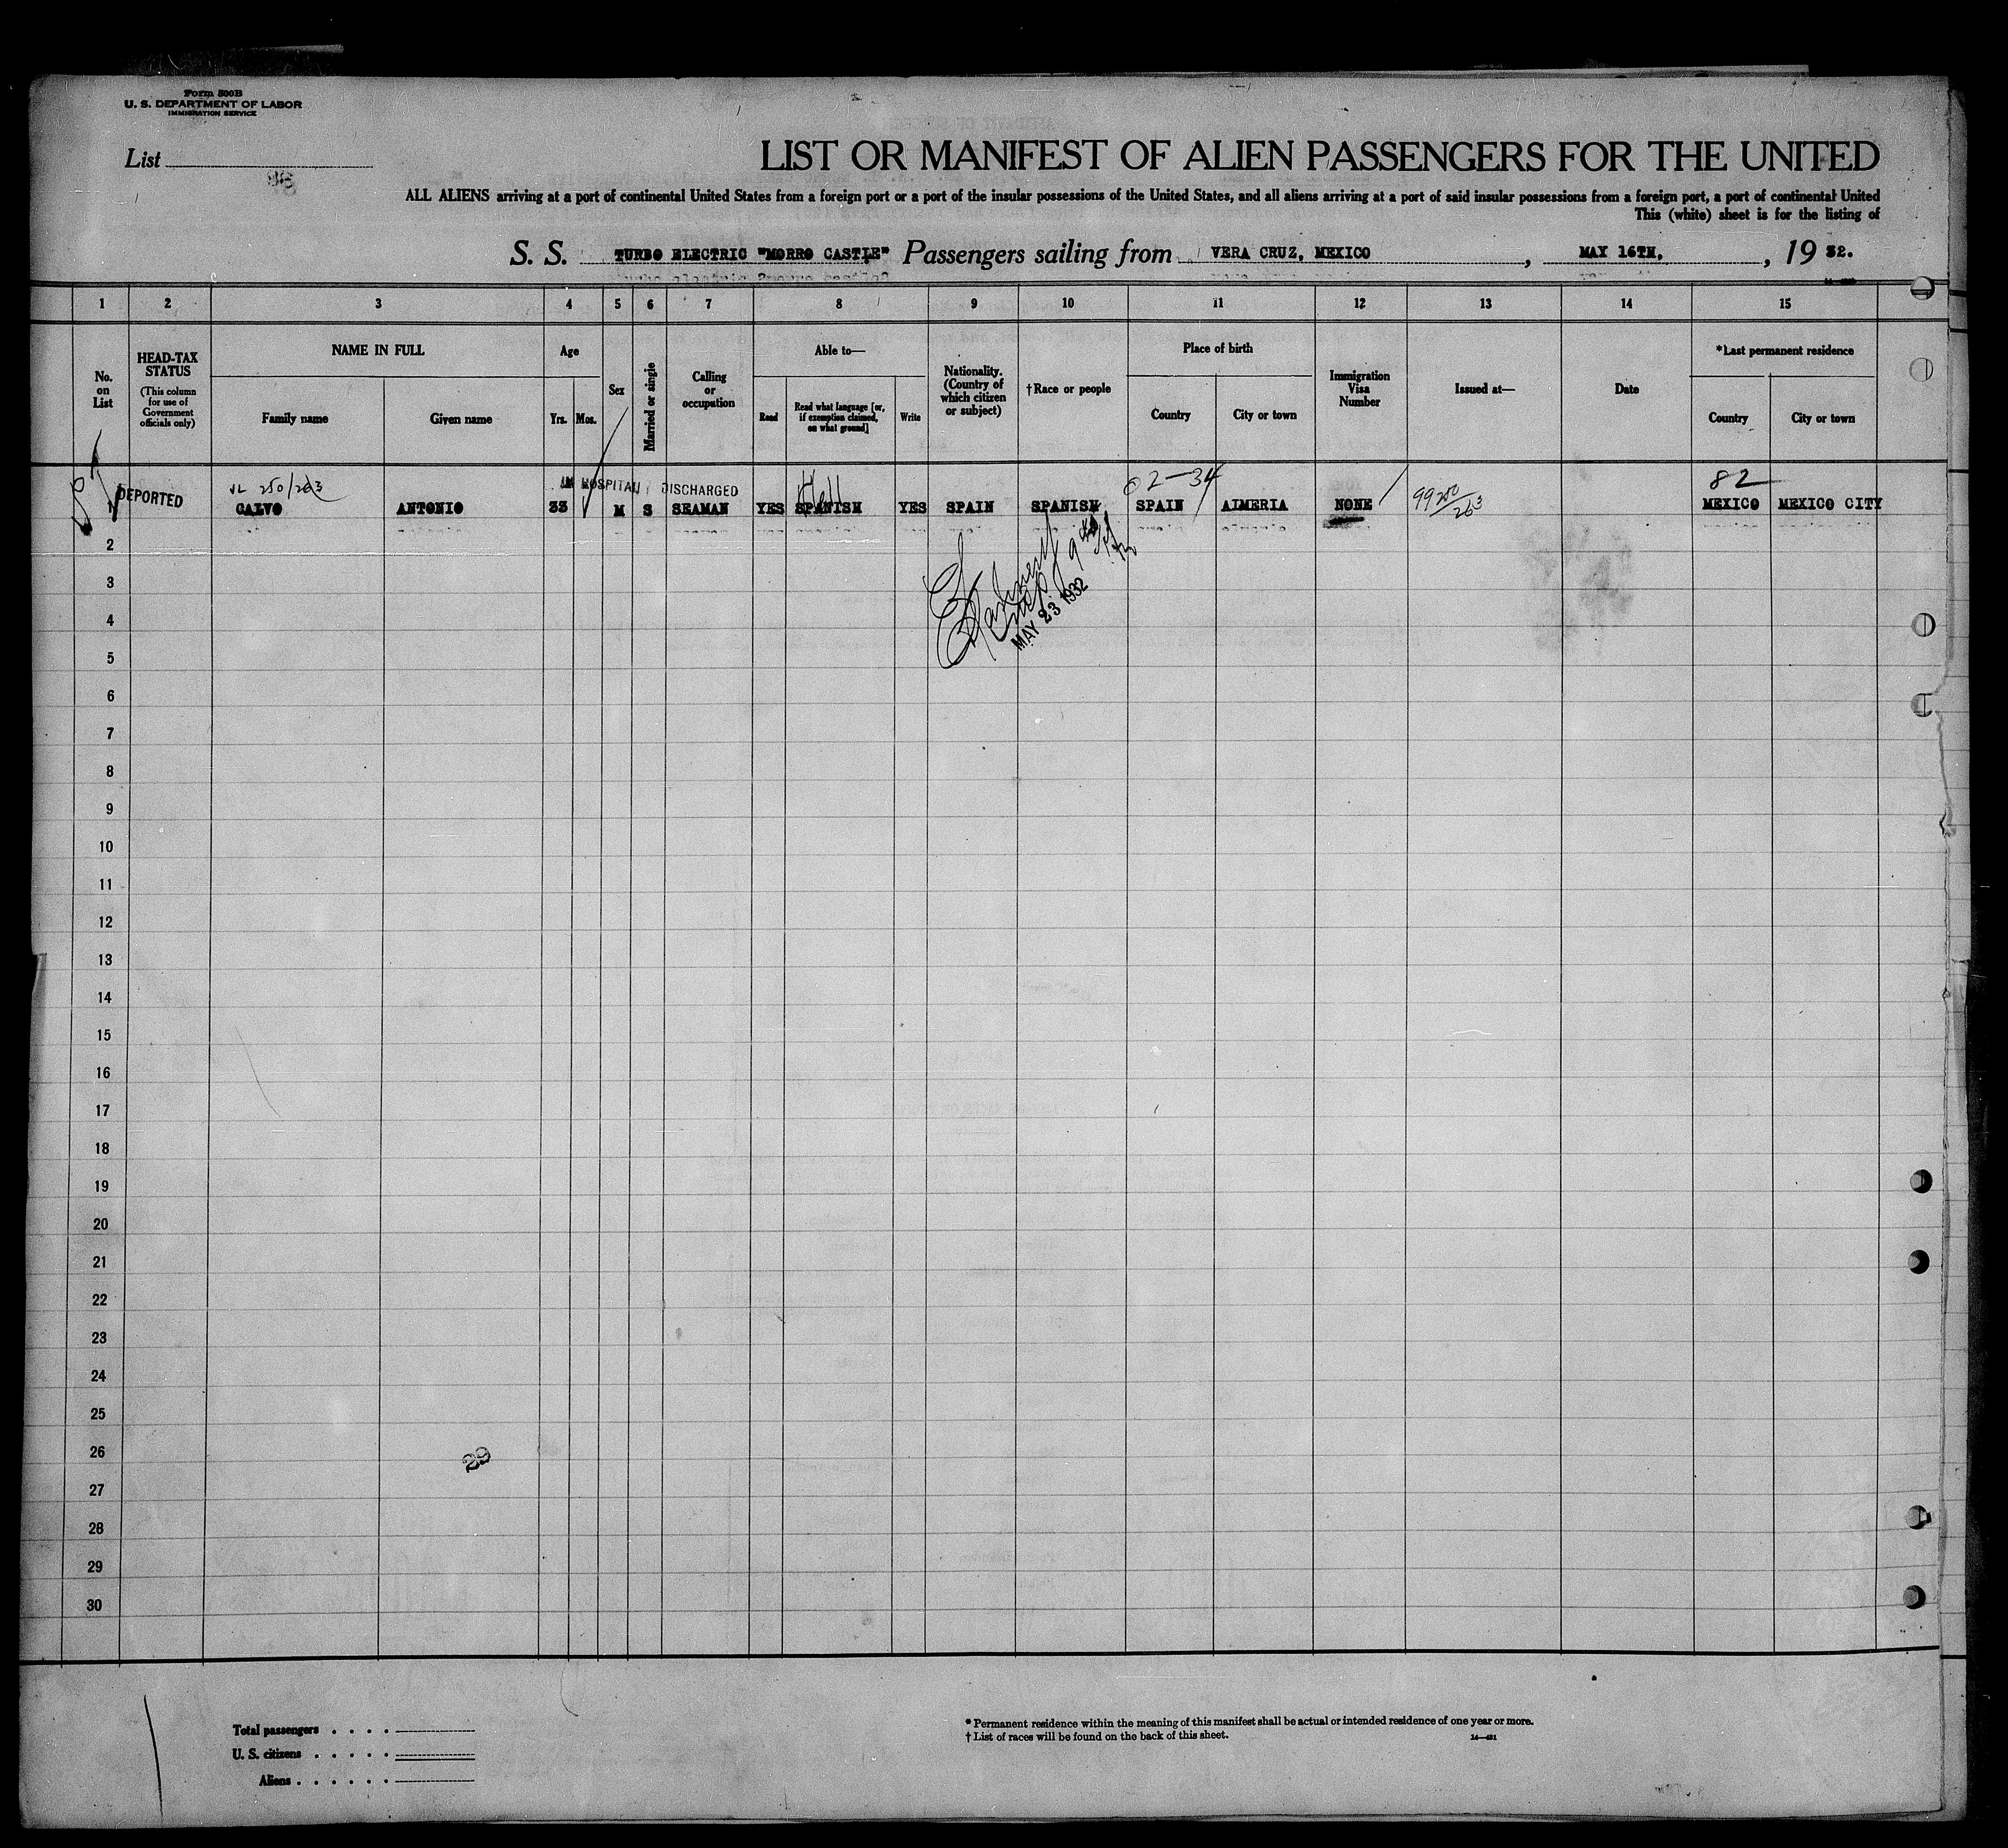 Form 500B
U. S. DEPARTMENT OF LABOR
IMMIGRATION SERVICE
List
LIST OR MANIFEST OF ALIEN PASSENGERS FOR THE UNITED
ALL ALIENS arriving at a port of continental United States from a foreign port or a port of the insular possessions of the United States, and all aliens arriving at a port of said insular possessions from a foreign port, a port of continental United
This (white) sheet is for the listing of
S. S. TURBO ELECTRIC "MORRO CASTLE" Passengers sailing from VERA CRUZ, MEXICO, MAY 16TH, , 19 32.
1 2 3 4 5 6 7 8 9 10 11 12 13 14 15
No. on List
HEAD-TAX STATUS
(This column for use of Government officials only)
NAME IN FULL
Family name
Given name
Age
Yrs. Mos.
Sex
Married or single
Calling or occupation
Able to—
Read
Read what language [or, if exemption claimed, on what ground]
Write
Nationality. (Country of which citizen or subject)
†Race or people
Place of birth
Country
City or town
Immigration Visa Number
Issued at—
Date
*Last permanent residence
Country
City or town
250/263
IN HOSPITAL DISCHARGED
02-34
82
DEPORTED CALVO ANTONIO 33 M S SEAMAN YES SPANISH YES SPAIN SPANISH SPAIN AIMERIA NONE 99 250/263 MEXICO MEXICO CITY
MAY 23 1932
2
3
4
5
6
7
8
9
10
11
12
13
14
15
16
17
18
19
20
21
22
23
24
25
26
29
27
28
29
30
Total passengers . . . .
U. S. citizens . . . . .
Aliens . . . . . .
* Permanent residence within the meaning of this manifest shall be actual or intended residence of one year or more.
† List of races will be found on the back of this sheet.